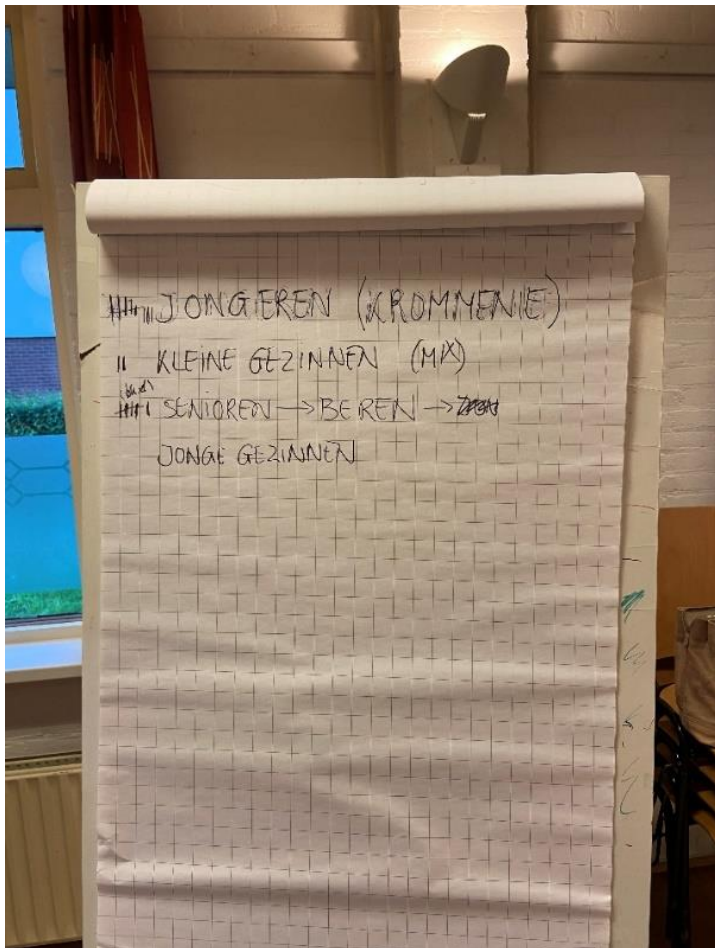 JONGEREN (KROMMENIE)
KLEINE GEZINNEN (MIX)
SENIOREN → BEREN →
JONGE GEZINNEN